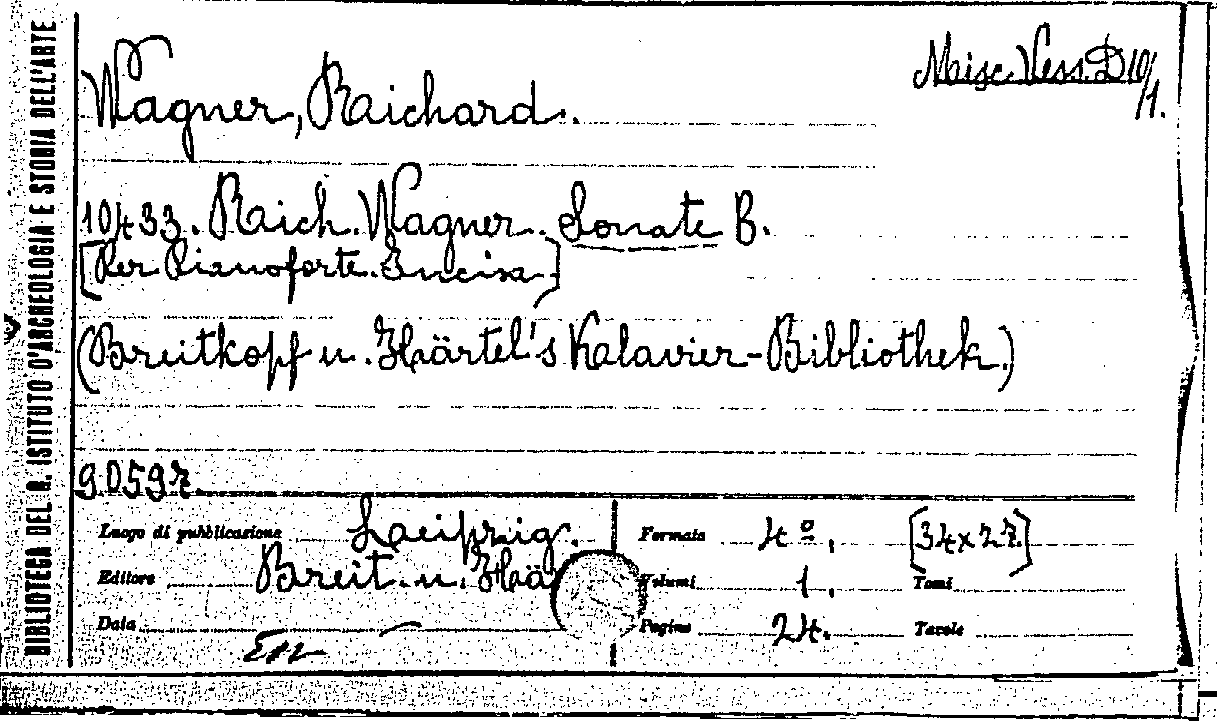 BIBLIOTECA DEL R. ISTITUTO D'ARCHEOLOGIA E STORIA DELL'ARTE
Misc. Vess. D 10/1.
Wagner, Raichard.
10433. Raich. Wagner. Sonate B.
[Per Pianoforte. Incisa.]
(Breitkopf u. Härtel's Klavier-Bibliothek.)
Luogo di pubblicazione Laeipzig. Formato 4º. [34x27.]
Editore Breit. u. Hä Volumi 1. Tomi
Data Pagine 24. Tavole